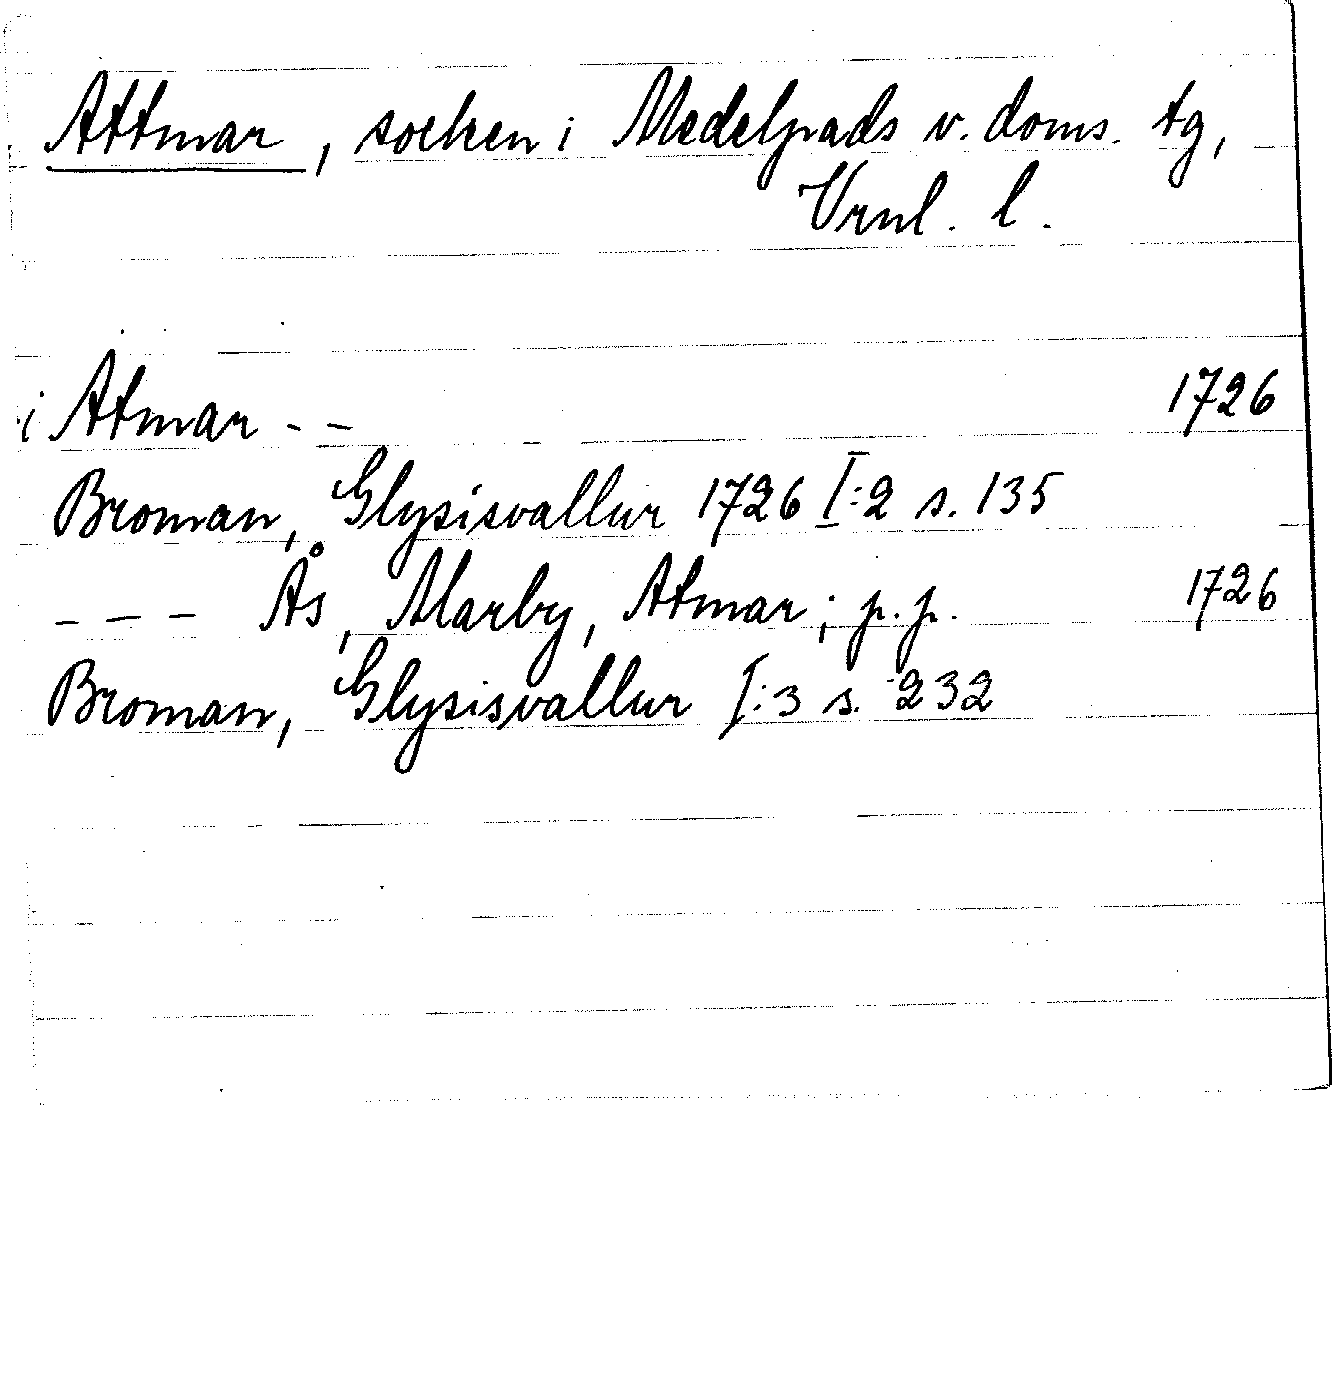 Attmar, socken i Medelpads v. doms. tg,
Vrnl. l.
i Atmar - - 1726
Broman, Glysisvallur 1726 I:2 s. 135
- - - Ås, Marby, Atmar; p.p. 1726
Broman, Glysisvallur I:3 s. 232